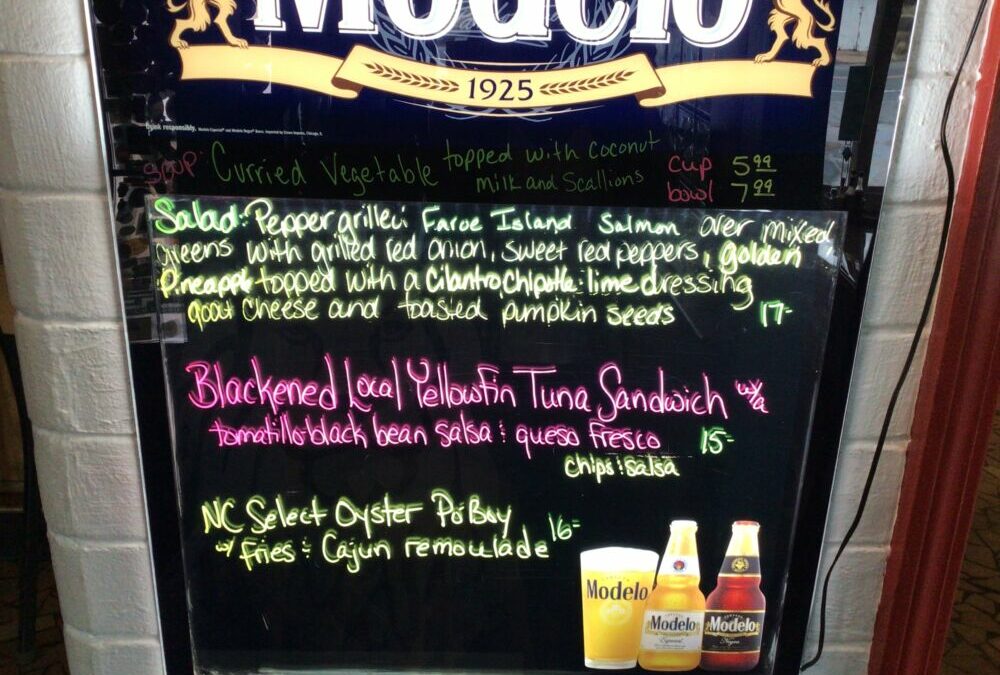 Modelo
1925
Drink responsibly.
soup Curried Vegetable topped with coconut
milk and Scallions
cup 5.99
bowl 7.99
Salad: Pepper grilled Faroe Island Salmon over mixed
greens with grilled red onion, sweet red peppers, golden
Pineapple topped with a Cilantro Chipotle lime dressing
goat cheese and toasted pumpkin seeds 17-
Blackened Local Yellowfin Tuna Sandwich w/a
tomatillo black bean salsa & queso fresco 15-
chips & salsa
NC Select Oyster Po'Boy
w/ fries & Cajun remoulade 16-
Modelo
Modelo
Especial
Modelo
Negra